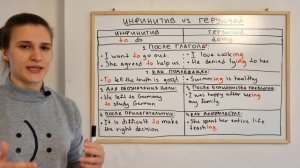 ИНФИНИТИВ VS ГЕРУНДИЙ
ИНФИНИТИВ
to do
ГЕРУНДИЙ
doing
ПОСЛЕ ГЛАГОЛА
I want to go out
She agreed to help us
I love cooking
He denied lying to her
КАК ПОДЛЕЖАЩЕЕ
To tell the truth is good
Swimming is healthy
ДЛЯ ОБОЗНАЧЕНИЯ ЦЕЛИ
He left to Germany
to study German
I was happy after seeing
my family
ПОСЛЕ ПРИЛАГАТЕЛЬНЫХ
It is difficult to make
the right decision
She spent her entire life
teaching